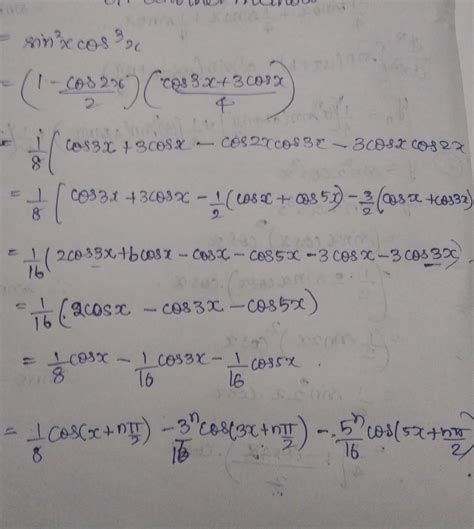 = sin²x cos³x
= (1 - cos2x / 2) (cos3x + 3cosx / 4)
= 1/8 ( cos3x + 3cosx - cos2x cos3x - 3cosx cos2x
= 1/8 ( cos3x + 3cosx - 1/2 (cosx + cos5x) - 3/2 (cosx + cos3x)
= 1/16 ( 2cos3x + 6cosx - cosx - cos5x - 3cosx - 3cos3x )
= 1/16 ( 2cosx - cos3x - cos5x )
= 1/8 cosx - 1/16 cos3x - 1/16 cos5x
= 1/8 cos(x + nπ/2) - 3ⁿ/16 cos(3x + nπ/2) - 5ⁿ/16 cos(5x + nπ/2)